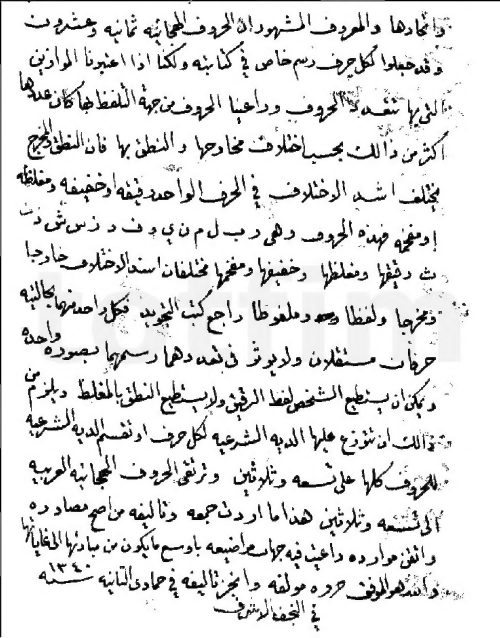 واتحادها والمعروف المشهور ان الحروف الهجائيه ثمانيه وعشرون
وقد جعلوا لكل حرف رسم خاص في كتابته ولكنا اذا اعتبرنا الموازين
التي بها تتعدد الحروف وراعينا الحروف من جهة التلفظ بها كان عددها
اكثر من ذالك بحسب اختلاف مخارجها والنطق بها فان النطق والمخرج
يختلف اشد الاختلاف في الحرف الواحد رقيقه او خفيفه ومغلظه
او مفخمه فهذه الحروف وهي ر ب ل م ن ي و ف د ز س ش ذ ت
ث رقيقها ومغلظها وخفيفها ومفخمها مختلفان اشد الاختلاف خارجيا
ومخرجا ولفظا وملفوظا راجع كتب التجويد فكل واحد منهما بحالتيه
حرفان مستقلان ولا يوثر في تعددهما رسمهما بصورة واحده
ويمكن ان يستطيع الشخص لفظ الرقيق ولا يستطيع النطق بالمغلظ ويلزم من
ذالك ان تتوزع عليها الديه الشرعيه لكل حرف او تقسم الديه الشرعيه
للحروف كلها على تسعه وثلاثين وترتقي الحروف الهجائيه العربيه
الى تسعه وثلاثين هذا ما اردت جمعه وتاليفه من اصح مصادره
واتقن موارده راعيت فيه جهات مواضيعه باوسع ما يكون من مبادئها الى غاياتها
والله هو الموفق حرره مولفه وانجز تاليفه في جمادى الثانيه سنه ١٣٤٠
في النجف الاشرف